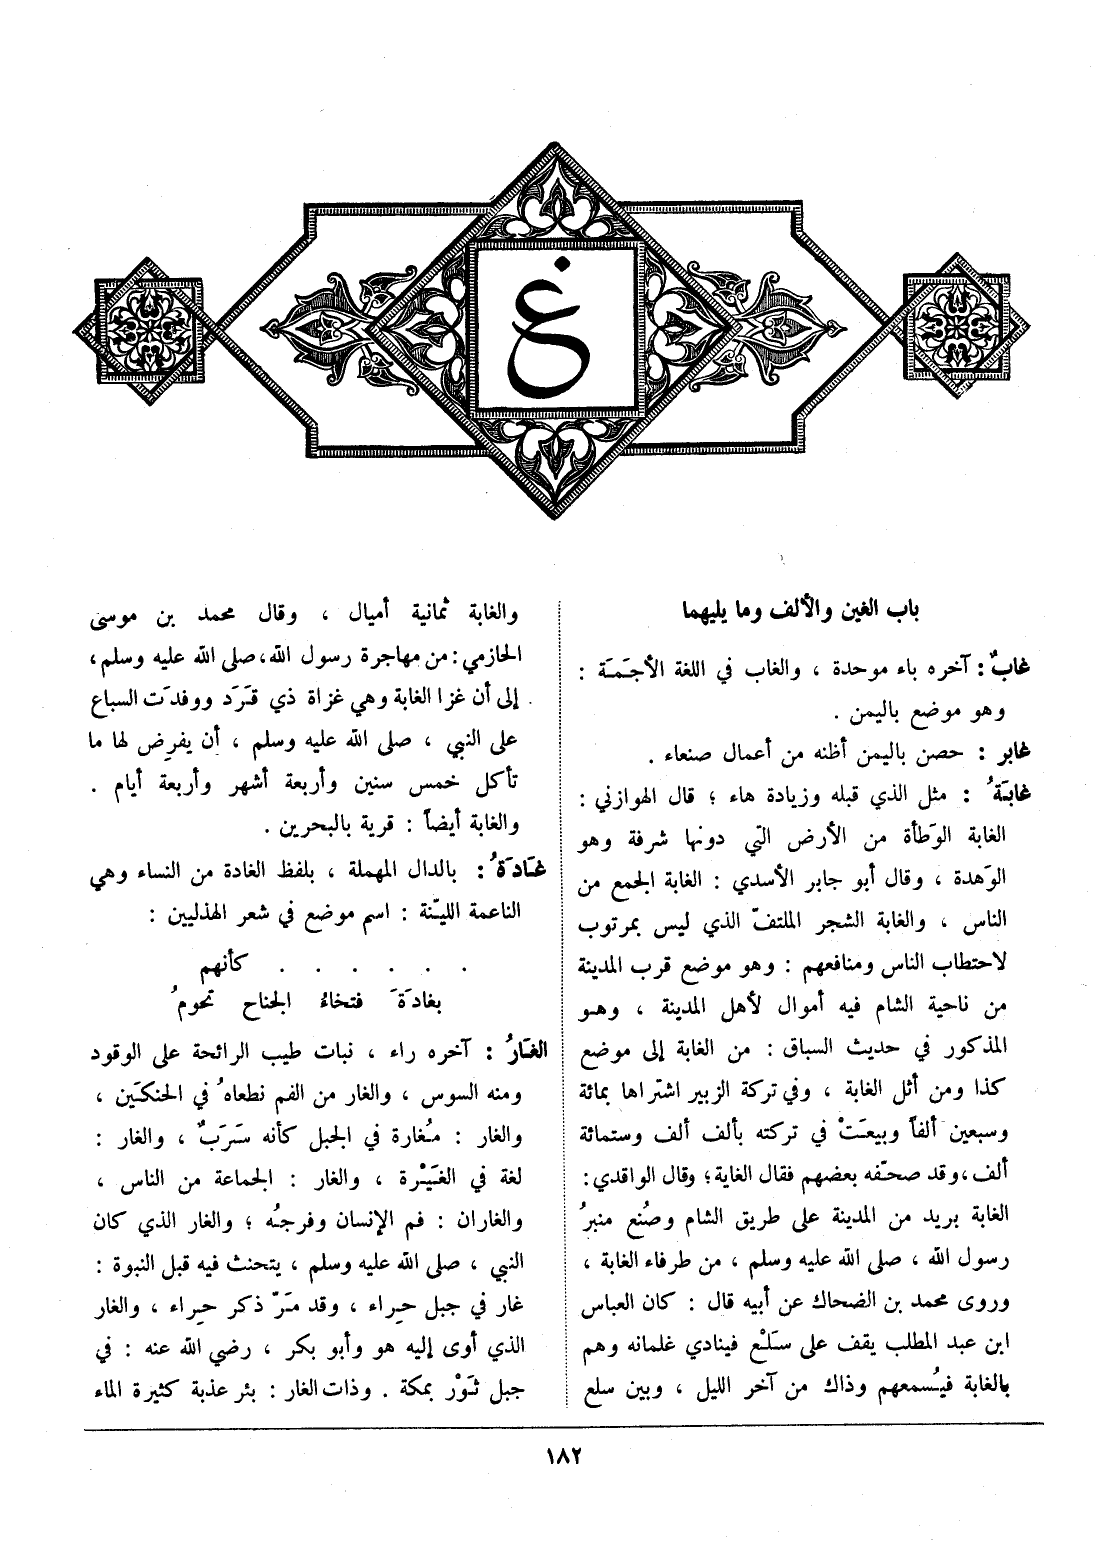 غ
باب الغين والألف وما يليهما
غابٌ : آخره باء موحدة ، والغاب في اللغة الأجَمَة :
وهو موضع باليمن .
غابر : حصن باليمن أظنه من أعمال صنعاء .
غابَةُ : مثل الذي قبله وزيادة هاء ؛ قال الهوازني :
الغابة الوَطأة من الأرض التي دونها شرفة وهو
الوَهدة ، وقال أبو جابر الأسدي : الغابة الجمع من
الناس ، والغابة الشجر الملتفّ الذي ليس بمرتوب
لاحتطاب الناس ومنافعهم : وهو موضع قرب المدينة
من ناحية الشام فيه أموال لأهل المدينة ، وهو
المذكور في حديث السباق : من الغابة إلى موضع
كذا ومن أثل الغابة ، وفي تركة الزبير اشتراها بمائة
وسبعين ألفاً وبيعَتْ في تركته بألف ألف وستمائة
ألف ، وقد صحّفه بعضهم فقال الغاية ؛ وقال الواقدي :
الغابة بريد من المدينة على طريق الشام وصُنع منبرُ
رسول الله ، صلى الله عليه وسلم ، من طرفاء الغابة ،
وروى محمد بن الضحاك عن أبيه قال : كان العباس
ابن عبد المطلب يقف على سَلْع فينادي غلمانه وهم
بالغابة فيُسمعهم وذاك من آخر الليل ، وبين سلع
والغابة ثمانية أميال ، وقال محمد بن موسى
الحازمي : من مهاجرة رسول الله ، صلى الله عليه وسلم ،
إلى أن غزا الغابة وهي غزاة ذي قَرَد ووفدَت السباع
على النبي ، صلى الله عليه وسلم ، أن يفرِض لها ما
تأكل خمس سنين وأربعة أشهر وأربعة أيام .
والغابة أيضاً : قرية بالبحرين .
غَادَةُ : بالدال المهملة ، بلفظ الغادة من النساء وهي
الناعمة الليّنة : اسم موضع في شعر الهذليين :
. . . . . . كأنهم
بغادَةَ فتخاءُ الجناح تحومُ
الغَارُ : آخره راء ، نبات طيب الرائحة على الوقود
ومنه السوس ، والغار من الفم نطعاهُ في الحنكَين ،
والغار : مُغارة في الجبل كأنه سَرَبٌ ، والغار :
لغة في الغَيْرة ، والغار : الجماعة من الناس ،
والغاران : فم الإنسان وفرجُه ؛ والغار الذي كان
النبي ، صلى الله عليه وسلم ، يتحنث فيه قبل النبوة :
غار في جبل حِراء ، وقد مَرّ ذكر حِراء ، والغار
الذي أوى إليه هو وأبو بكر ، رضي الله عنه : في
جبل ثَوْر بمكة . وذات الغار : بئر عذبة كثيرة الماء
١٨٢